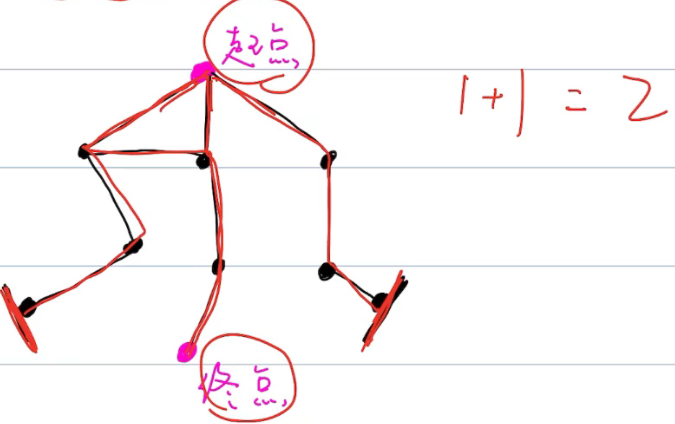 起点
1+1=2
终点